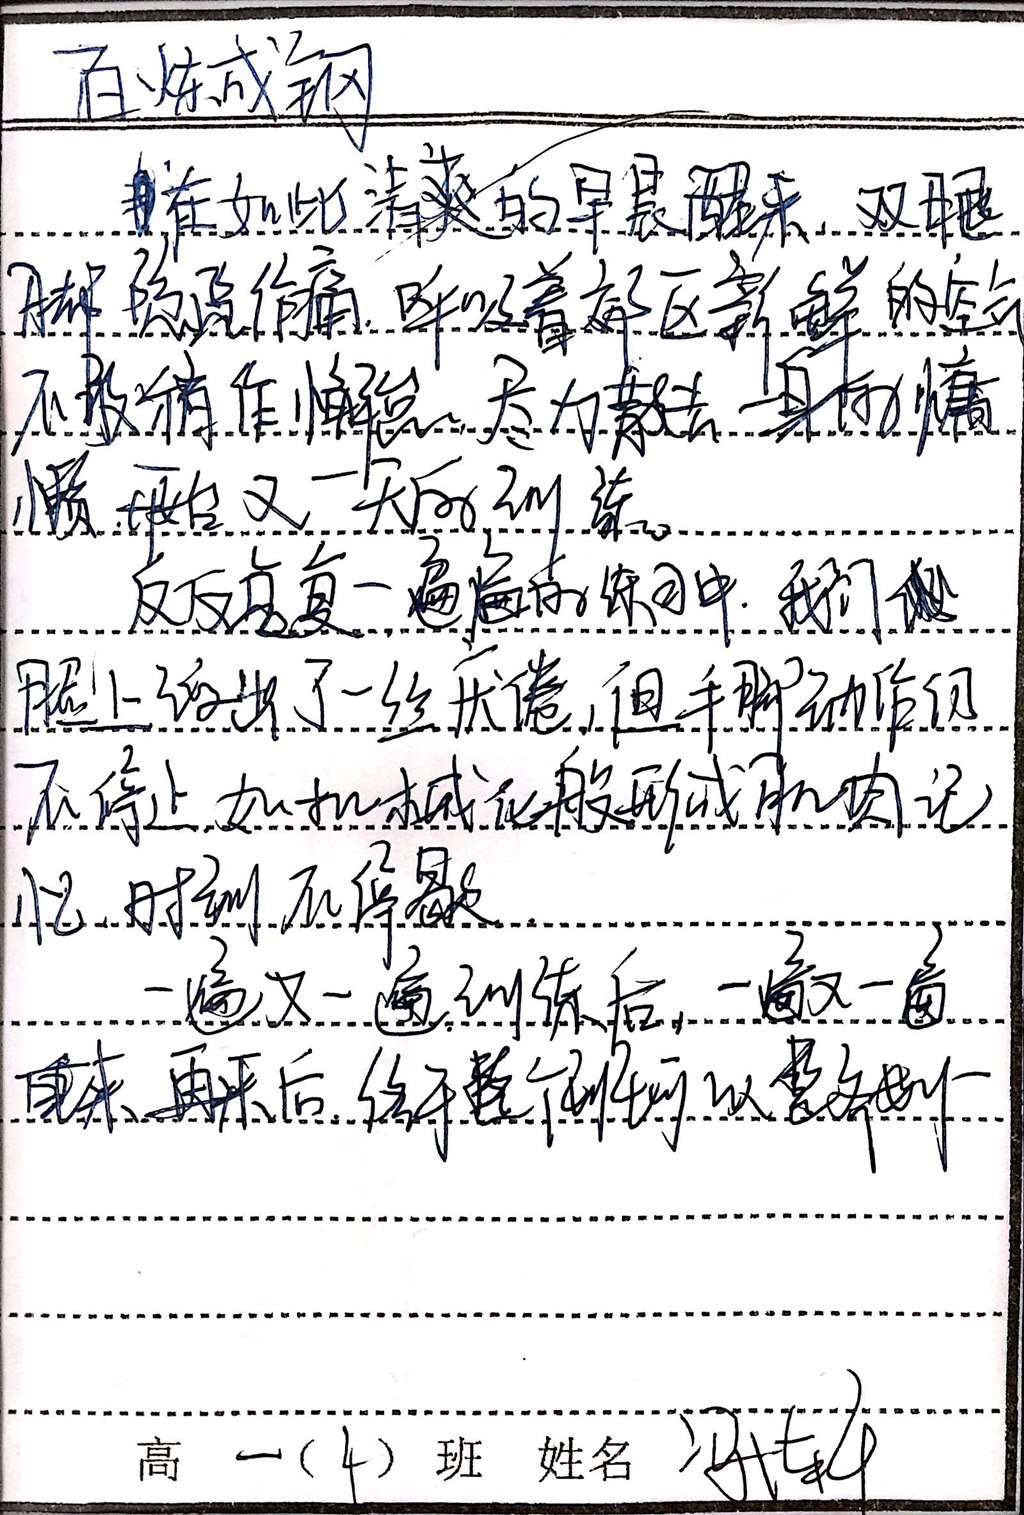 百炼成钢
在如此清爽的早晨醒来,双腿
脚隐隐作痛,呼吸着郊区新鲜的空气
不敢稍作懈怠,尽力散去一身的慵
懒,开始又一天的训练。
反反复复一遍遍的练习中,我们
腿上浮出了一丝厌倦,但手脚动作仍
不停止,如机械化般形成肌肉记
忆,时刻不停歇.
一遍又一遍训练后,一遍又一遍
重来、再来后,给予整个
高一(4)班 姓名 冯